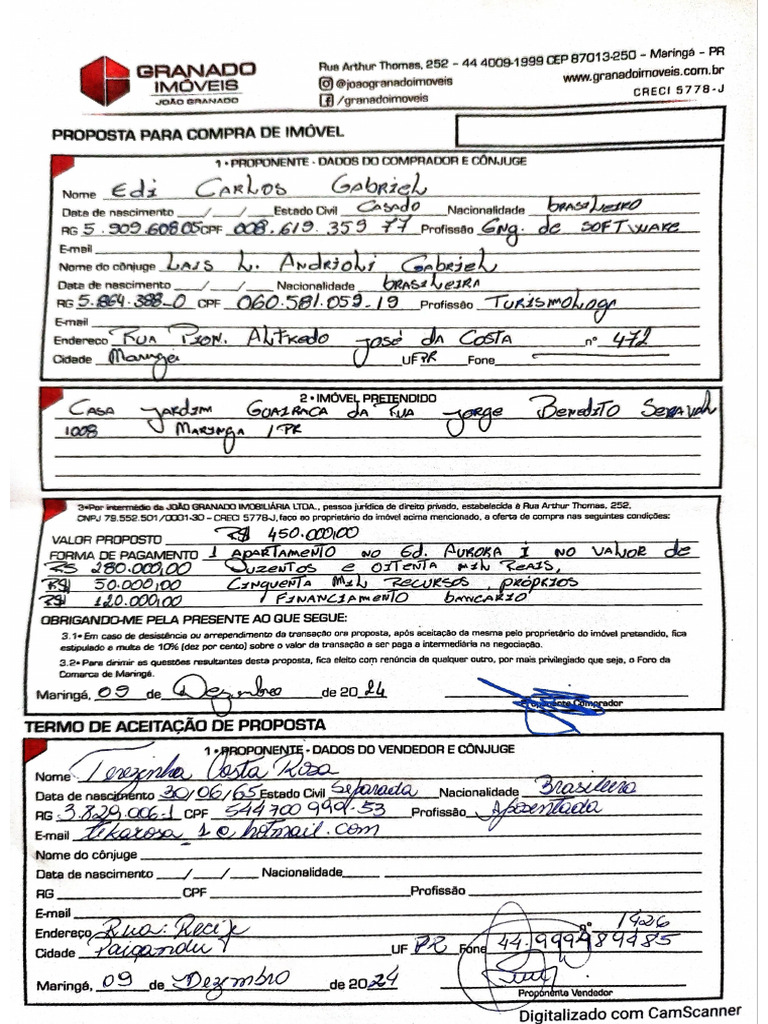 GRANADO
IMÓVEIS
JOÃO GRANADO
Rua Arthur Thomas, 252 - 44 4009-1999 CEP 87013-250 - Maringá - PR
@joaogranadoimoveis
www.granadoimoveis.com.br
/granadoimoveis
CRECI 5778-J
PROPOSTA PARA COMPRA DE IMÓVEL
1 • PROPONENTE - DADOS DO COMPRADOR E CÔNJUGE
Nome Edi Carlos Gabriel
Data de nascimento __/__/__ Estado Civil Casado Nacionalidade brasileiro
RG 5.909.60805 CPF 008.619.359 77 Profissão Eng. de SOFTWARE
E-mail
Nome do cônjuge Lais L. Andrioli Gabriel
Data de nascimento __/__/__ Nacionalidade brasileira
RG 5.864.388_0 CPF 060.581.059_19 Profissão Turismologa
E-mail
Endereço Rua Pion. Alfredo José da Costa nº 472
Cidade Maringá UF PR Fone
2 • IMÓVEL PRETENDIDO
Casa Jardim Guairaca da Rua Jorge Benedito
1008 Maringa / PR
3•Por intermédio da JOÃO GRANADO IMOBILIÁRIA LTDA., pessoa jurídica de direito privado, estabelecida à Rua Arthur Thomas, 252,
CNPJ 79.552.501/0001-30 - CRECI 5778-J, faço ao proprietário do imóvel acima mencionado, a oferta de compra nas seguintes condições:
VALOR PROPOSTO R$ 450.000,00
FORMA DE PAGAMENTO 1 Apartamento no Ed. Aurora I no valor de
R$ 280.000,00 Duzentos e oitenta mil Reais,
R$ 50.000,00 Cinquenta mil Recursos próprios
R$ 120.000,00 1 Financiamento bancário
OBRIGANDO-ME PELA PRESENTE AO QUE SEGUE:
3.1• Em caso de desistência ou arrependimento da transação ora proposta, após aceitação da mesma pelo proprietário do imóvel pretendido, fica
estipulado a multa de 10% (dez por cento) sobre o valor da transação a ser paga a intermediária na negociação.
3.2• Para dirimir as questões resultantes desta proposta, fica eleito com renúncia de qualquer outro, por mais privilegiado que seja, o Foro da
Comarca de Maringá.
Maringá, 09 de Dezembro de 2024
Proponente Comprador
TERMO DE ACEITAÇÃO DE PROPOSTA
1 • PROPONENTE - DADOS DO VENDEDOR E CÔNJUGE
Nome Terezinha Costa Rosa
Data de nascimento 30/06/65 Estado Civil Separada Nacionalidade Brasileira
RG 3.829.006-1 CPF 544 700 999-53 Profissão Aposentada
E-mail tekarosa_1@hotmail.com
Nome do cônjuge
Data de nascimento __/__/__ Nacionalidade
RG CPF Profissão
E-mail
Endereço Rua: Recife nº 1426
Cidade Paiçandu UF PR Fone 44.999489485
Maringá, 09 de Dezembro de 2024
Proponente Vendedor
Digitalizado com CamScanner